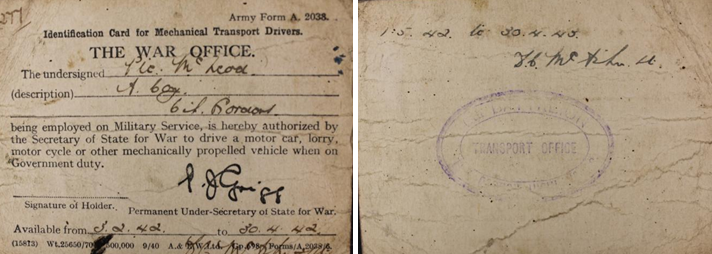 Army Form A. 2038.
Identification Card for Mechanical Transport Drivers.
THE WAR OFFICE.
The undersigned Pte. McLeod
(description) A. Coy.
being employed on Military Service, is hereby authorized by
the Secretary of State for War to drive a motor car, lorry,
motor cycle or other mechanically propelled vehicle when on
Government duty.
P. J. Grigg
Signature of Holder. Permanent Under-Secretary of State for War.
Available from 3.2.42. to 30.4.42
(15813) Wt.25650/ 500,000 9/40 A.& Ltd. Forms/A.2038/
1.5.42 to 30.4.43.
TRANSPORT OFFICE